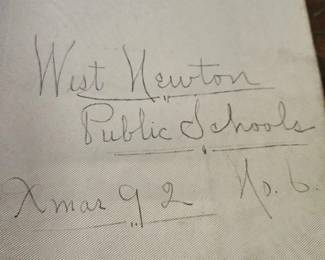 West Newton
Public Schools
Xmas 92 No. 6.